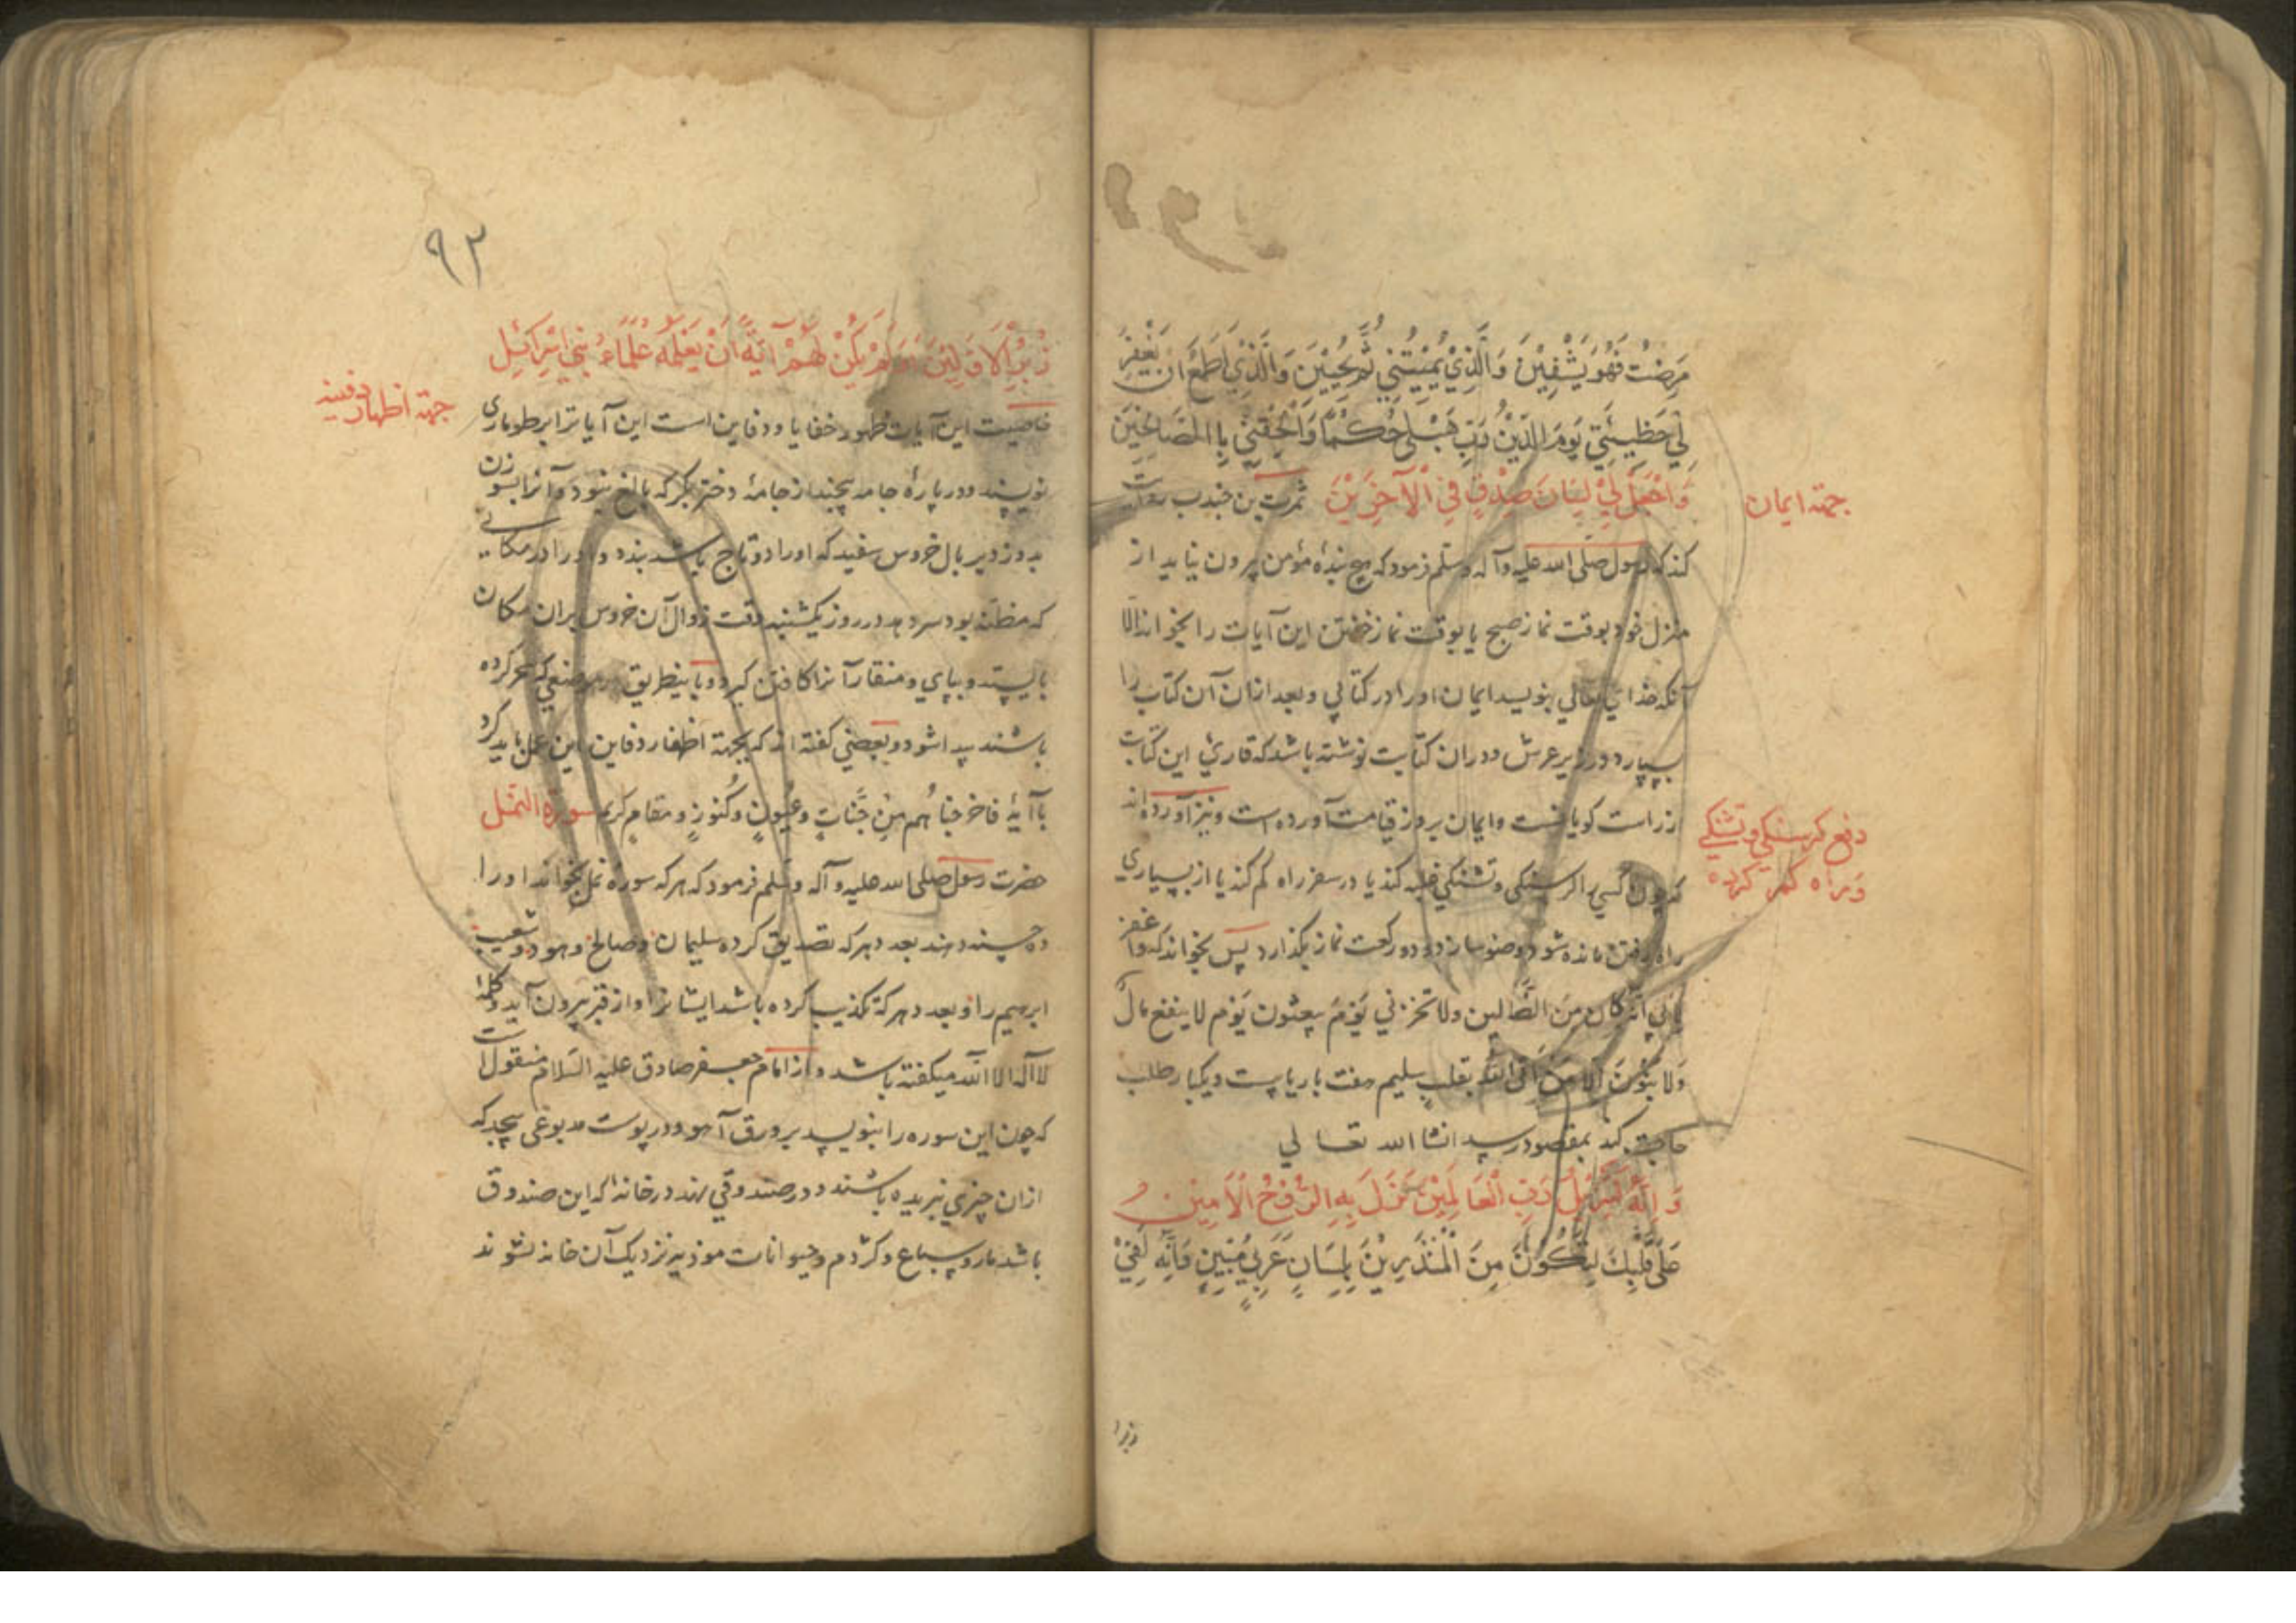 مَرِضْتُ فَهُوَ يَشْفِيْنِ وَالَّذِيْ يُمِيْتُنِي ثُمَّ يُحْيِيْنِ وَالَّذِيْ اَطْمَعُ اَنْ يَغْفِرَ
لِيْ خَطِيئَتِي يَوْمَ الدِّيْنِ رَبِّ هَبْ لِي حُكْمًا وَاَلْحِقْنِي بِاالصَّالِحِيْنَ
وَاجْعَلْ لِيْ لِسَانَ صِدْقٍ فِي الْآخِرِيْنَ ثمرت بن جندب روایت
جهة ایمان
کند که رسول صلی الله علیه وآله وسلم فرمود که هیچ بندهٔ مؤمن بیرون نیاید از
منزل خود بوقت نماز صبح یا بوقت نماز خفتن این آیات را بخواند الا
آنکه خدای تعالی بنویسد ایمان اورا در کتابی و بعد ازان آن کتاب را
بسپارد در زیر عرش ودران کتابت نوشته باشد که قاریٔ این کتابت
از راست کویانست وایمان بروز قیامت آورده است ونیز آورده‌اند
دفع کرسنکی وتشنکی
وراه کم کرده
که چون کسی را کرسنکی وتشنکی غلبه کند یا در سفر راه کم کند یا از بسیاری
راه رفتن مانده شود وضو سازد و دو رکعت نماز بکذارد پس بخواند که واغفر
لابی انه کان من الضالین ولا تخزنی یوم یبعثون یوم لا ینفع مال
ولا بنون الا من اتی الله بقلب سلیم هفت بار یا بیست ویکبار طلب
حاجت کند بمقصود رسد انشا الله تعالی
وَاِنَّهُ لَتَنْزِيْلُ رَبِّ الْعَالَمِيْنَ نَزَلَ بِهِ الرُّوْحُ الْاَمِيْنُ
عَلَى قَلْبِكَ لِتَكُوْنَ مِنَ الْمُنْذِرِيْنَ بِلِسَانٍ عَرَبِيٍّ مُبِيْنٍ وَاِنَّهُ لَفِيْ
زبرا
٩٢
زُبُرِ الْاَوَّلِيْنَ اَوَلَمْ يَكُنْ لَهُمْ آيَةً اَنْ يَعْلَمَهُ عُلَمَاءُ بَنِي اِسْرَائِيل
جهة اظهار دفینه
خاصیت این آیات ظهور خفایا ودفاین است این آیاترا بر طوماری
نویسند ودر پارهٔ جامه پیچند از جامهٔ دختر بکر که بالغ نبود وآنرا بسوزن
بدوزد بر بال خروس سفید که اورا دو تاج باشد بندد و اورا در مکانی
که مظنه بود سر دهد در روز یکشنبه وقت زوال آن خروس بران مکان
بایستد وبپای ومنقار آنرا کافتن کیرد وباینطریق هر موضعی که سحر کرده
باشند پیدا شود وبعضی کفته‌اند که بجهة اظهار دفاین این عمل باید کرد
با آیهٔ فاخرجناهم من جنات وعیون وکنوز ومقام کریم سورة النمل
حضرت رسول صلی الله علیه وآله وسلم فرمود که هر که سورهٔ نمل بخواند اورا
ده حسنه دهند بعدد هر که تصدیق کرده سلیمان وصالح وهود وشعیب
ابرهیم را وبعدد هر که تکذیب کرده باشد ایشانرا واز قبر بیرون آید وکلمهٔ
لا اله الا الله میکفته باشد واز امام جعفر صادق علیه السلام منقول است
که چون این سوره را بنویسد بر ورق آهو ودر پوست مدبوغی پیچد که
ازان چیزی نبریده باشند ودر صندوقی نهد در خانهٔ که این صندوق
باشد مار وسباع وکژدم وحیوانات موذیه نزدیک آن خانه نشوند